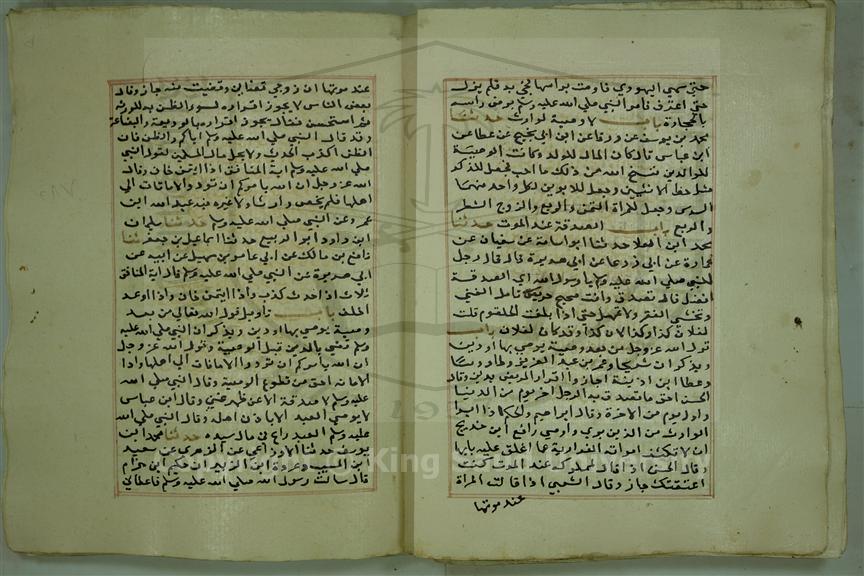 حتى سمي اليهودي فاومت براسها فجي به فلم يزل
حتى اعترف فامر النبي صلى الله عليه وسلم برض راسه
بالحجارة باب لا وصية لوارث حدثنا
محمد بن يوسف عن ورقا عن ابن ابي نجيح عن عطا عن
ابن عباس قال كان المال للولد وكانت الوصية
للوالدين فنسخ الله من ذلك ما احب فجعل للذكر
مثل حظ الانثيين وجعل للابوين لكل واحد منهما
السدس وجعل للمراة الثمن والربع والزوج الشطر
والربع باب الصدقة عند الموت حدثنا
محمد ابن العلا حدثنا ابو اسامة عن سفيان عن
عمارة عن ابي زرعة عن ابي هريرة قال قال رجل
للنبي صلى الله عليه وسلم يا رسول الله اي الصدقة
افضل قال ان تصدق وانت صحيح حريص تامل الغنى
وتخشى الفقر ولا تمهل حتى اذا بلغت الحلقوم قلت
لفلان كذا وكذا لفلان كذا وقد كان لفلان باب
قول الله عز وجل من بعد وصية يوصي بها او دين
ويذكر ان شريحا وعمر بن عبد العزيز وطاوسا
وعطا وابن اذينة اجازوا اقرار المريض بدين وقال
الحسن احق ما تصدق به الرجل اخر يوم من الدنيا
واول يوم من الاخرة وقال ابراهيم والحكم اذا ابرا
الوارث من الدين بري واوصي رافع ابن خديج
ان لا تكشف امراته الفزارية عما اغلق عليه بابها
وقال الحسن اذا قال لمملوكه عند الموت كنت
اعتقتك جاز وقال الشعبي اذا قالت المراة
عند موتها
عند موتها ان زوجي قضاني وقبضت منه جاز وقال
بعض الناس لا يجوز اقراره لسوء الظن به للورثة
ثم استحسن فقال يجوز اقراره بالوديعة والبضاعة
وقد قال النبي صلى الله عليه وسلم اياكم والظن فان
الظن اكذب الحديث ولا يحل مال المسلمين لقول النبي
صلى الله عليه وسلم اية المنافق اذا ائتمن خان وقال
الله عز وجل ان الله يامركم ان تودوا الامانات الى
اهلها فلم يخص وارثا ولا غيره فيه عبد الله ابن
عمرو عن النبي صلى الله عليه وسلم حدثنا سليمان
ابن داود ابو الربيع حدثنا اسماعيل بن جعفر ثنا
نافع بن مالك بن ابي عامر ابو سهيل عن ابيه عن
ابي هريرة عن النبي صلى الله عليه وسلم قال اية المنافق
ثلاث اذا حدث كذب واذا ائتمن خان واذا وعد
اخلف باب تاويل قول الله تعالى من بعد
وصية يوصي بها او دين ويذكر ان النبي صلى الله عليه
وسلم قضى بالدين قبل الوصية وقوله الله عز وجل
ان الله يامركم ان تودوا الامانات الى اهلها فاداء
الامانة احق من تطوع الوصية وقال النبي صلى الله
عليه وسلم لا صدقة الا عن ظهر غنى وقال ابن عباس
لا يوصي العبد الا باذن اهله وقال النبي صلى الله
عليه وسلم العبد راع في مال سيده حدثنا محمد ابن
يوسف حدثنا الاوزاعي عن الزهري عن سعيد
ابن المسيب وعروة ابن الزبير ان حكيم ابن حزام
قال سالت رسول الله صلى الله عليه وسلم فاعطاني